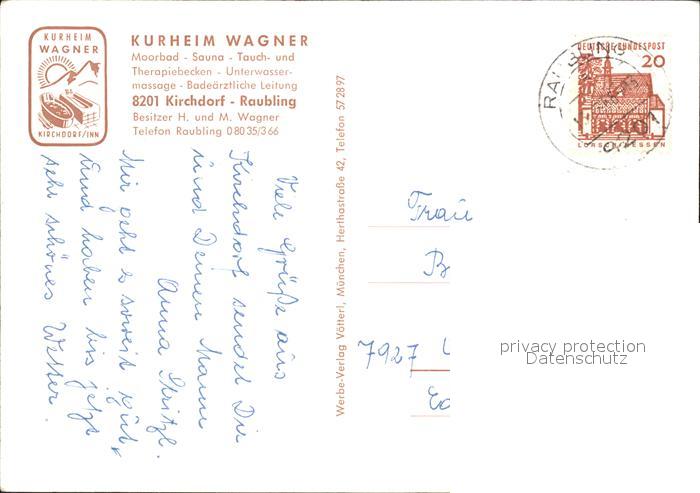 KURHEIM
WAGNER
KIRCHDORF/INN
KURHEIM WAGNER
Moorbad - Sauna - Tauch- und
Therapiebecken - Unterwasser-
massage - Badeärztliche Leitung
8201 Kirchdorf - Raubling
Besitzer H. und M. Wagner
Telefon Raubling 0 80 35/3 66
Viele Grüße aus
Kirchdorf sendet Dir
und Deinem Mann
Anna Stritzl.
Mir geht es soweit gut,
Und haben bis jetzt
sehr schönes Wetter.
Werbe-Verlag Vötterl, München, Herthastraße 42, Telefon 57 28 97
DEUTSCHE BUNDESPOST
20
LORSCH/HESSEN
RAUBLING
8201
Frau
B
7927
privacy protection
Datenschutz